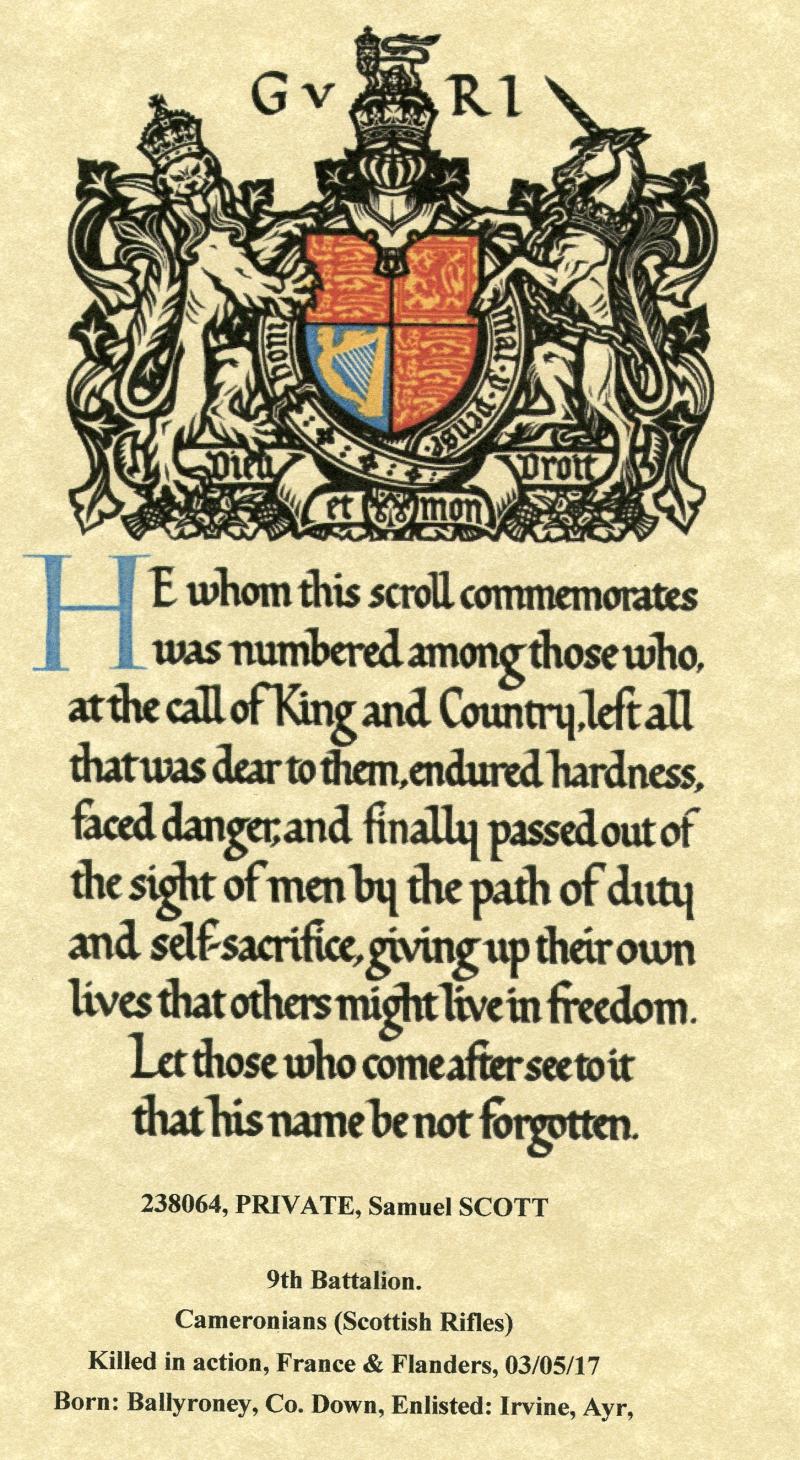 G V R I
HONI
mal·y·pense·
Dieu
Droit
et mon
HE whom this scroll commemorates
was numbered among those who,
at the call of King and Country, left all
that was dear to them, endured hardness,
faced danger, and finally passed out of
the sight of men by the path of duty
and self-sacrifice, giving up their own
lives that others might live in freedom.
Let those who come after see to it
that his name be not forgotten.
238064, PRIVATE, Samuel SCOTT
9th Battalion.
Cameronians (Scottish Rifles)
Killed in action, France & Flanders, 03/05/17
Born: Ballyroney, Co. Down, Enlisted: Irvine, Ayr,